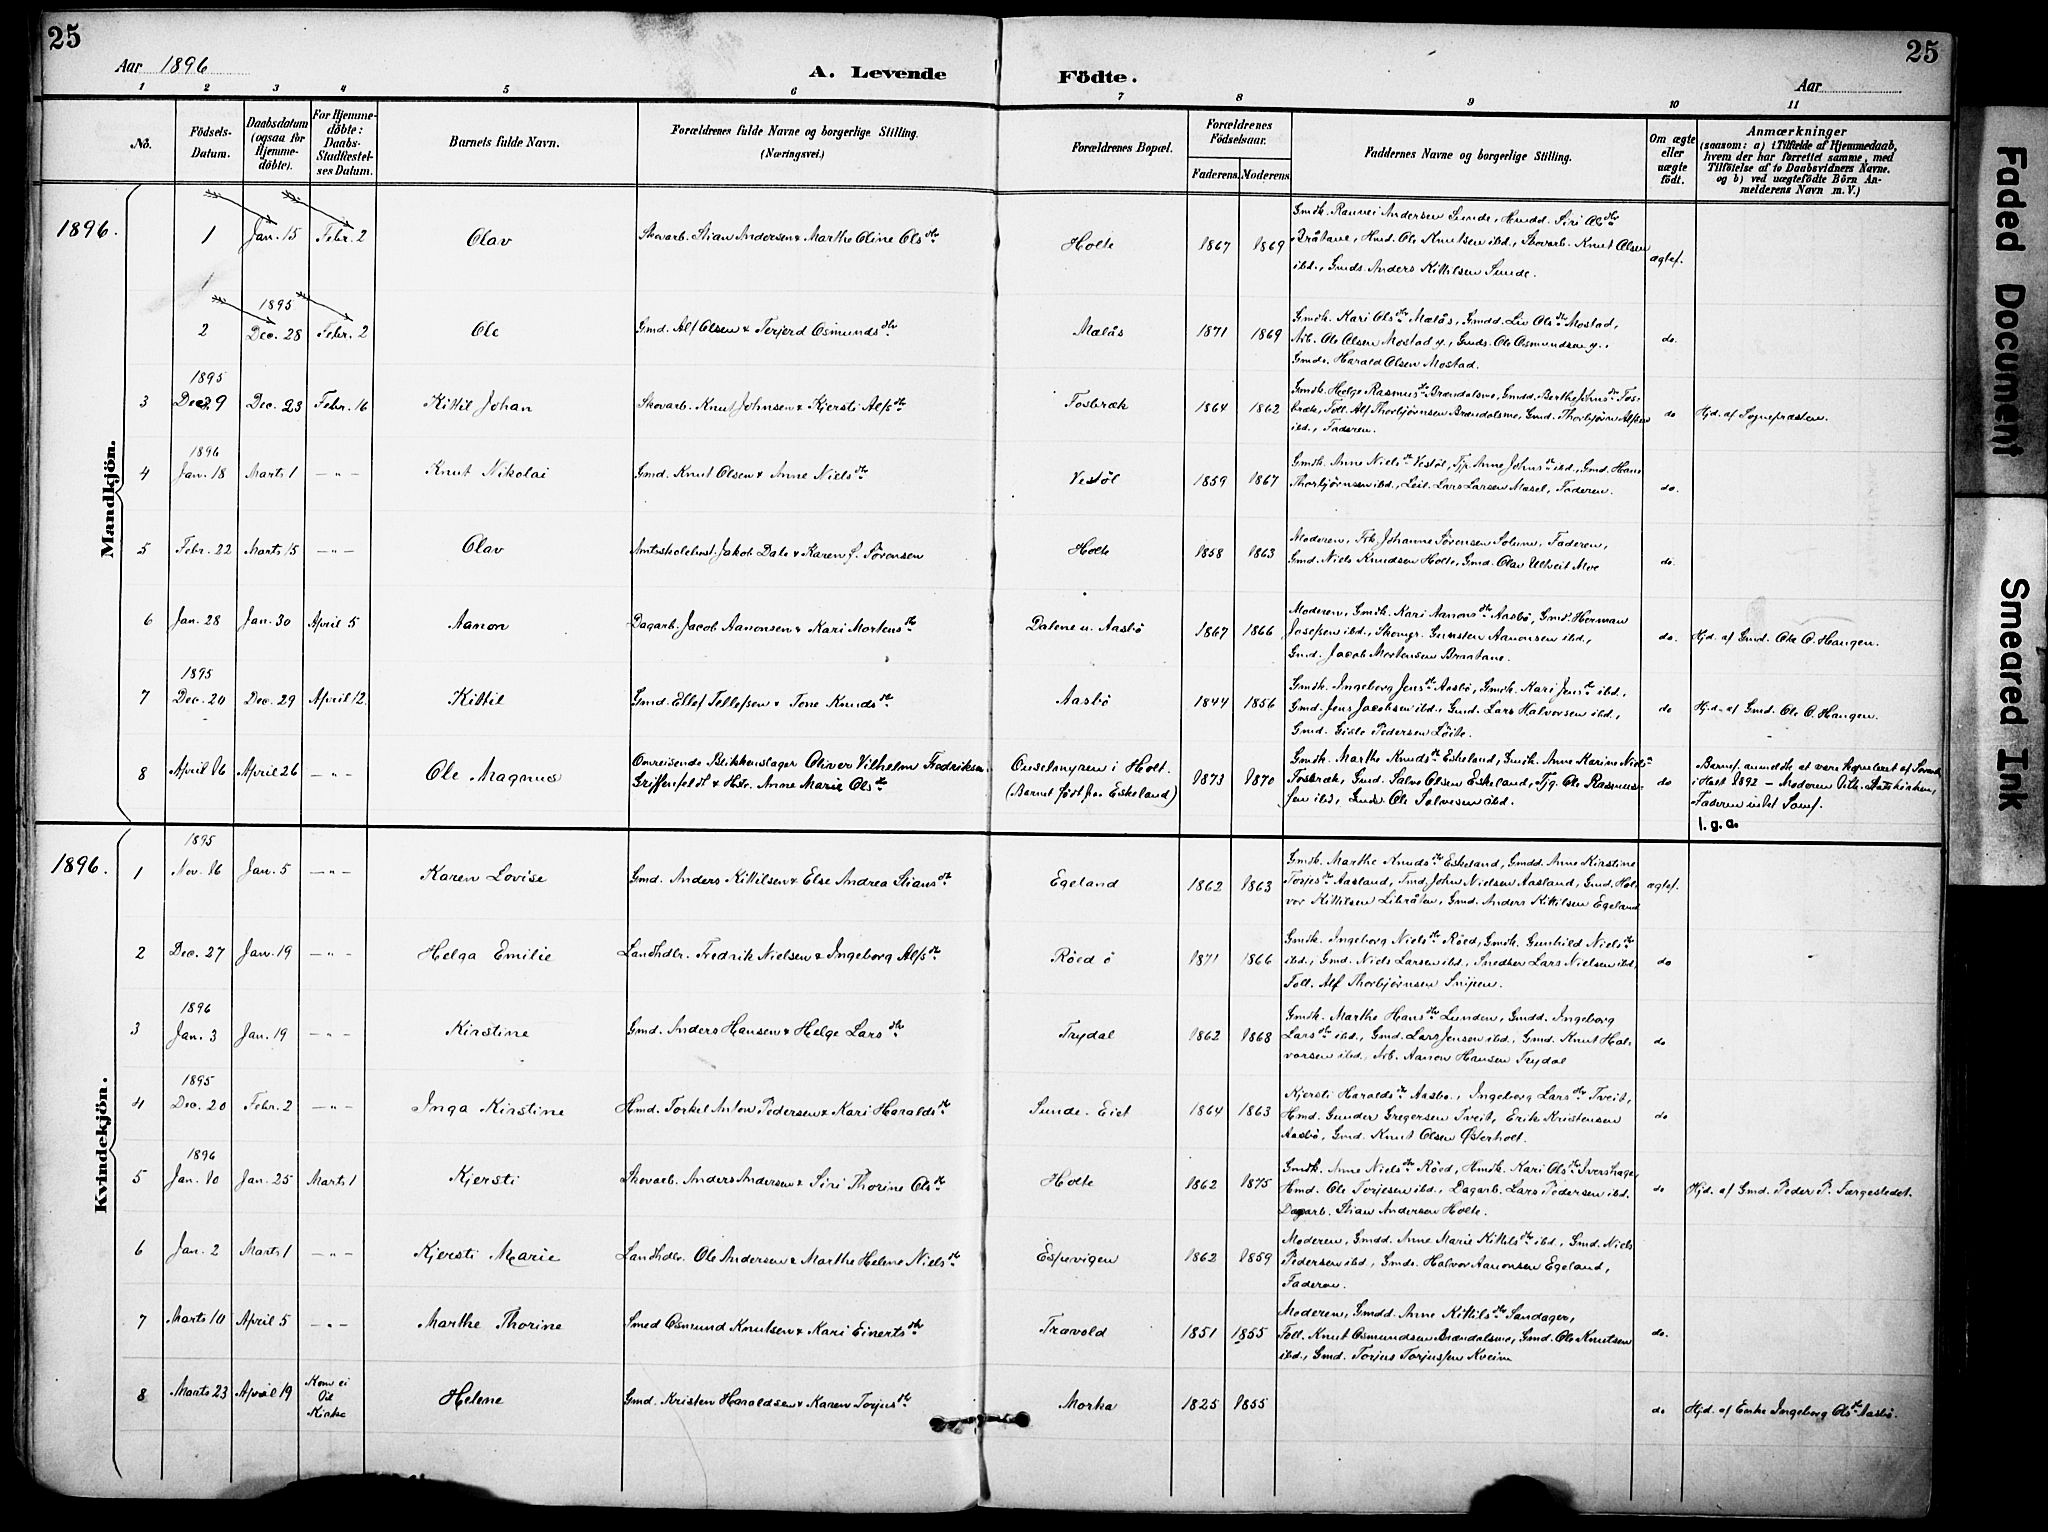 25
25
Aar 1896
A. Levende Födte.
Aar
1 2 3 4 5 6 7 8 9 10 11
No.
Födsels-Datum.
Daabsdatum (ogsaa for Hjemme-döbte).
For Hjemme-döbte: Daabs-Stadfæstel-ses Datum.
Barnets fulde Navn.
Forældrenes fulde Navne og borgerlige Stilling.
(Næringsvei.)
Forældrenes Bopæl.
Forældrenes Födselsaar.
Faderens. Moderens.
Faddernes Navne og borgerlige Stilling.
Om ægte eller uægte födt.
Anmærkninger
(saasom: a) i Tilfælde af Hjemmedaab,
hvem der har forrettet samme, med
Tilföielse af to Daabsvidners Navne.
og b) ved uægtefödte Börn An-
melderens Navn m. V.)
Mandkjön.
1896.
1 Jan. 15 Febr. 2 Olav Skovarb. Stian Andersen & Marthe Oline Olsdtr Holte 1867 1869
Gmdk. Rannei Andersen Sunde, Hmdd. Siri Olsdtr
Bråtane, Hmd. Ole Knutsen ibd., Skovarb. Knut Olsen
ibd., Gmds. Anders Kittilsen Sunde.
ægtef.
1
2 1895 Dec. 28 Febr. 2 Ole Gmd. Alf Olsen & Terjerd Osmundsdtr Mælås 1871 1869
Gmdk. Kari Olsdtr Mælås, Gmdd. Liv Olsdtr Mostad,
Arb. Ole Olsen Mostad y., Gmds. Ole Osmundsen y.,
Gmds. Harald Olsen Mostad.
do.
1895
3 Dec. 9 Dec. 23 Febr. 16 Kittil Johan Skovarb. Knut Johnsen & Kjersti Alfsdtr Fosbræk 1864 1862
Gmdk. Helge Rasmusdtr Brændalsmo, Gmdd. Berthe Johnsdtr Fos-
bræk, Foll. Alf Thorbjørnsen Brændalsmo, Gmd. Thorbjørn Alfsen
ibd., Faderen.
do Hjd. af Sognepræsten.
1896
4 Jan. 18 Marts 1 – " – Knut Nikolai Gmd. Knut Olsen & Anne Nielsdtr Vestøl 1859 1867
Gmdk. Anne Nielsdtr Vestøl, Tjp. Anne Johnsdtr ibd., Gmd. Hans
Thorbjørnsen ibd., Leil. Lars Larsen Mosel, Faderen.
do.
5 Febr. 22 Marts 15 – " – Olav Amtsskolebest. Jakob Dale & Karen f. Sørensen Holte 1858 1863
Moderen, Frk. Johanne Sørensen Solum, Faderen,
Gmd. Niels Knudsen Holte, Gmd. Olav Ulltveit Moe
do.
6 Jan. 28 Jan. 30 April 5 Aanon Dagarb. Jacob Aanonsen & Kari Mortensdtr Dalene u. Aasbö 1867 1866
Moderen, Gmdk. Kari Aanonsdtr Aasbö, Gmd. Herman
Josefsen ibd., Skomgr. Gunsten Aanonsen ibd.,
Gmd. Jacob Mortensen Braatane.
do. Hjd. af Gmd. Ole O. Haugen.
1895
7 Dec. 20 Dec. 29 April 12. Kittil Gmd. Ellef Tellefsen & Tone Knudsdtr Aasbö 1844 1856
Gmdk. Ingeborg Jensdtr Aasbö, Gmdk. Kari Jensdtr ibd.,
Gmd. Jens Jacobsen ibd., Gmd. Lars Halvorsen ibd.,
Gmd. Gisle Pedersen Löite.
do Hjd. af Gmd. Ole O. Haugen.
8 April 16 April 26 – " – Ole Magnus
Omreisende Blikkenslager Oliver Vilhelm Fredriksen
Griffenfeldt & Hstr. Anne Marie Olsdtr
Ouselmyren i Holt.
(Barnet født paa Eskeland)
1873 1870
Gmdk. Marthe Knudsdtr Eskeland, Gmdk. Anne Karine Nielsdtr
Fosbræk, Gmd. Salve Olsen Eskeland, Tjg. Ole Rasmus-
sen ibd., Gmds. Ole Salvesen ibd.
do
i Høst 1892 – Moderen Tilh. Statskirken,
I. g. a.
Kvindekjön.
1896.
1895
1 Nov. 16 Jan. 5 – " – Karen Lovise Gmd. Anders Kittilsen & Else Andrea Stiansdtr Egeland 1862 1863
Gmdk. Marthe Knudsdtr Eskeland, Gmdd. Anne Kirstine
Torjesdtr Aasland, Tmd. John Nielsen Aasland, Gmd. Hal-
vor Kittilsen Libråten, Gmd. Anders Kittilsen Egeland
ægtef.
2 Dec. 27 Jan. 19 – " – Helga Emilie Landhdlr. Fredrik Nielsen & Ingeborg Alfsdtr Röed ö 1871 1866
Gmdk. Ingeborg Nielsdtr Röed, Gmdk. Gunhild Nielsdtr
ibd., Gmd. Niels Larsen ibd., Snedker Lars Nielsen ibd.,
Foll. Alf Thorbjørnsen Snipen.
do
1896
3 Jan. 3 Jan. 19 – " – Kirstine Gmd. Anders Hansen & Helge Larsdtr Trydal 1862 1868
Gmdk. Marthe Hansdtr Lunden, Gmdd. Ingeborg
Larsdtr ibd., Gmd. Lars Jensen ibd., Gmd. Knut Hal-
vorsen ibd., Arb. Aanon Hansen Trydal
do
1895
4 Dec. 20 Febr. 2 – " – Inga Kirstine Hmd. Torkel Anton Pedersen & Kari Haraldsdtr Sunde-Eiet 1864 1863
Kjersti Haraldsdtr Aasbo., Ingeborg Larsdtr Tveit,
Hmd. Gunder Gregersen Tveit, Erik Kristensen
Aasbö, Gmd. Knut Olsen Østerholt.
do
1896
5 Jan. 10 Jan. 25 Marts 1 Kjersti Skovarb. Anders Andersen & Siri Thorine Olsdtr Holte 1862 1875
Gmdk. Anne Nielsdtr Röed, Hmdk. Kari Olsdtr Ivershagen
Hmd. Ole Torjesen ibd., Dagarb. Lars Pedersen ibd.
Dagarb. Stian Andersen Holte.
do Hjd. af Gmd. Peder P. Færgestedet.
6 Jan. 2 Marts 1 – " – Kjersti Marie Landhdlr. Ole Andersen & Marthe Helene Nielsdtr Espevigen 1862 1859
Moderen, Gmdd. Anne Marie Kittilsdtr ibd., Gmd. Niels
Pedersen ibd., Gmds. Halvor Aanonsen Egeland,
Faderen.
7 Marts 10 April 5 – " – Marthe Thorine Smed Osmund Knutsen & Kari Einertsdtr Travold 1851 1855
Moderen, Gmdd. Anne Kittilsdtr Sandager,
Foll. Knut Osmundsen Brændalsmo, Gmd. Ole Knutsen
ibd., Gmd. Torjus Torjussen Kveim
do.
8 Marts 23 April 19 Kom ei til Kirke Helene Gmd. Kristen Haraldsen & Karen Torjusdtr Morka 1825 1855
do Hjd. af Enke Ingeborg Olsdtr Aasbö.
Faded Document
Smeared Ink